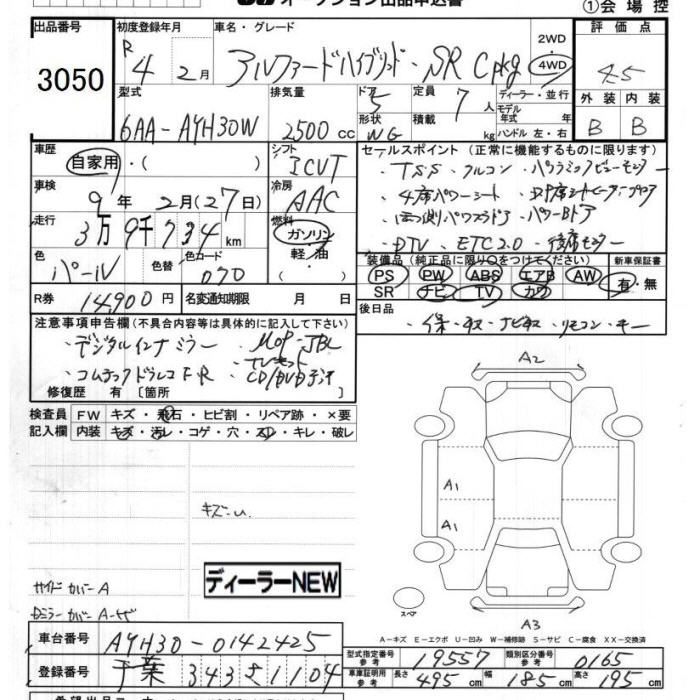 オークション出品申込書
①会場控
出品番号 3050
初度登録年月 R 4 2月
車名・グレード アルファードハイブリッド・SR Cpkg
2WD
4WD
評価点 4.5
外装 内装
B B
型式 6AA-AYH30W
排気量 2500 cc
ドア 5
形状 WG
定員 7人
積載 kg
ディーラー・並行
モデル年式 年式
ハンドル 左・右
車歴 自家用・( )
シフト ICVT
車検 9年 2月(27日)
冷房 AAC
走行 3万9千734km
燃料 ガソリン・軽油・
色 パール
色替
色コード 070
R券 14,900円
名変通知期限 月 日
セールスポイント (正常に機能するものに限ります)
・TSS・フルコン・パノラミックビューモニター
・4席パワーシート
・両側パワスラドア・パワーBドア
・DTV・ETC2.0・後席モニター
装備品(純正品に限り○をつけてください)
新車保証書
PS PW ABS エアB AW
SR ナビ TV カワ
有・無
後日品
・保・取・ナビ取・リモコン・キー
注意事項申告欄(不具合内容等は具体的に記入して下さい)
・デジタルインナミラー ・MOP-JBL
・コムテックドラレコF・R ・CD/DVDデッキ
修復歴 有 [箇所
検査員 FW キズ・飛石・ヒビ割・リペア跡・×要
記入欄 内装 キズ・汚レ・コゲ・穴・スレ・キレ・破レ
A2
A1
A1
A3
キズ小
サイドカバーA
ディーラーNEW
スペア
A-キズ E-エクボ U-凹み W-補修跡 S-サビ C-腐食 XX-交換済
車台番号 AYH30-0142425
登録番号 千葉 343 す 1104
型式指定番号 参考 19557
類別区分番号 参考 0165
車庫証明用 参考 長さ 495cm 幅 185cm 高さ 195cm